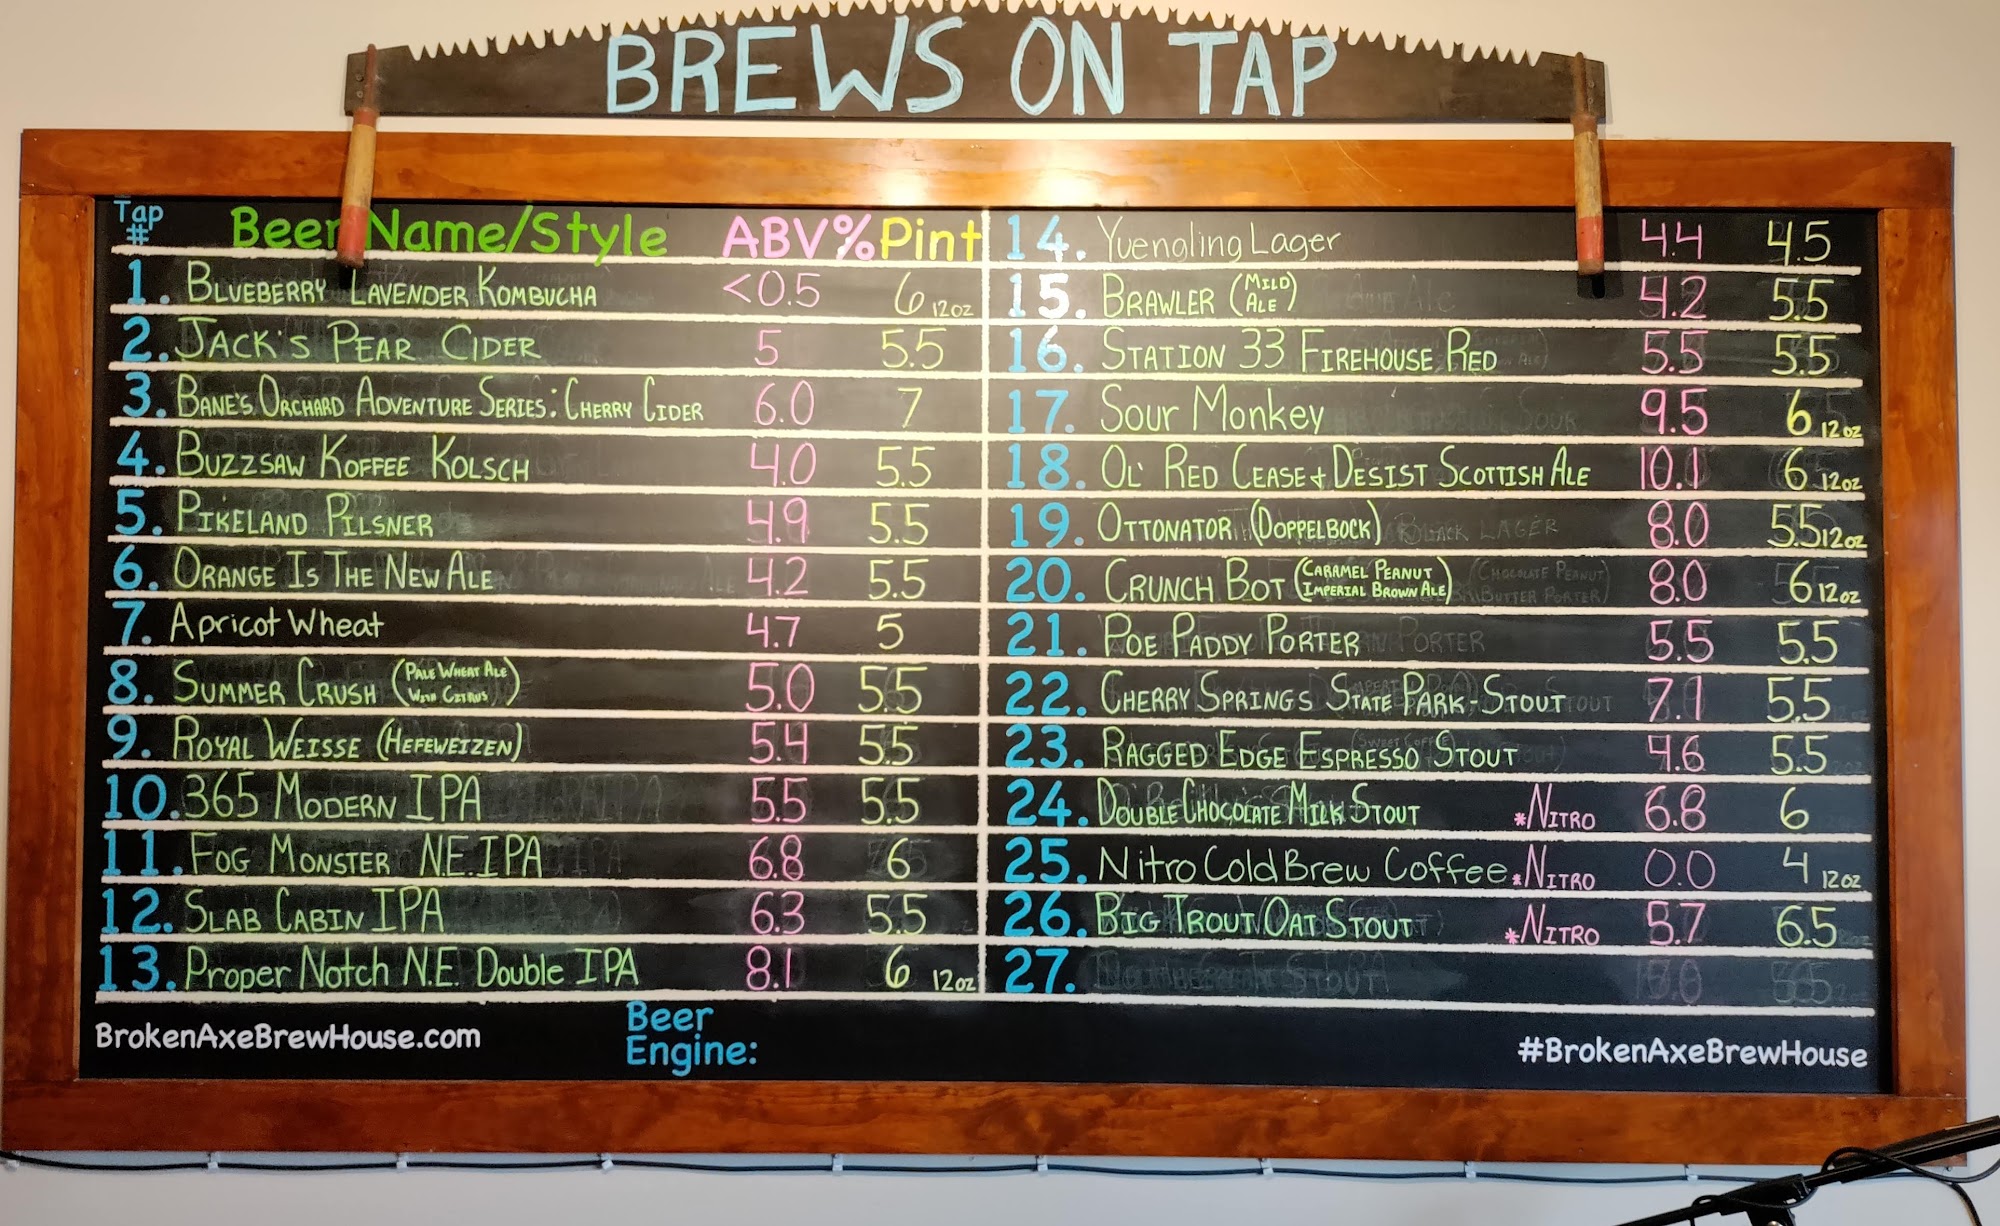 BREWS ON TAP
Tap # Beer Name/Style ABV% Pint
1. BLUEBERRY LAVENDER KOMBUCHA <0.5 6 12oz
2. JACK'S PEAR CIDER 5 5.5
3. BANE'S ORCHARD ADVENTURE SERIES: CHERRY CIDER 6.0 7
4. BUZZSAW KOFFEE KOLSCH 4.0 5.5
5. PIKELAND PILSNER 4.9 5.5
6. ORANGE IS THE NEW ALE 4.2 5.5
7. Apricot Wheat 4.7 5
8. SUMMER CRUSH (PALE WHEAT ALE WITH CITRUS) 5.0 5.5
9. ROYAL WEISSE (HEFEWEIZEN) 5.4 5.5
10. 365 MODERN IPA 5.5 5.5
11. FOG MONSTER N.E. IPA 6.8 6
12. SLAB CABIN IPA 6.3 5.5
13. Proper Notch N.E. Double IPA 8.1 6 12oz
14. Yuengling Lager 4.4 4.5
15. BRAWLER (MILD ALE) 4.2 5.5
16. STATION 33 FIREHOUSE RED 5.5 5.5
17. Sour Monkey 9.5 6 12oz
18. OL' RED CEASE + DESIST SCOTTISH ALE 10.1 6 12oz
19. OTTONATOR (DOPPELBOCK) 8.0 5.5 12oz
20. CRUNCH BOT (CARAMEL PEANUT IMPERIAL BROWN ALE) 8.0 6 12oz
21. POE PADDY PORTER 5.5 5.5
22. CHERRY SPRINGS STATE PARK-STOUT 7.1 5.5
23. RAGGED EDGE ESPRESSO STOUT 4.6 5.5
24. DOUBLE CHOCOLATE MILK STOUT *NITRO 6.8 6
25. Nitro Cold Brew Coffee *NITRO 0.0 4 12oz
26. BIG TROUT OAT STOUT *NITRO 5.7 6.5
27.
BrokenAxeBrewHouse.com
Beer
Engine:
#BrokenAxeBrewHouse